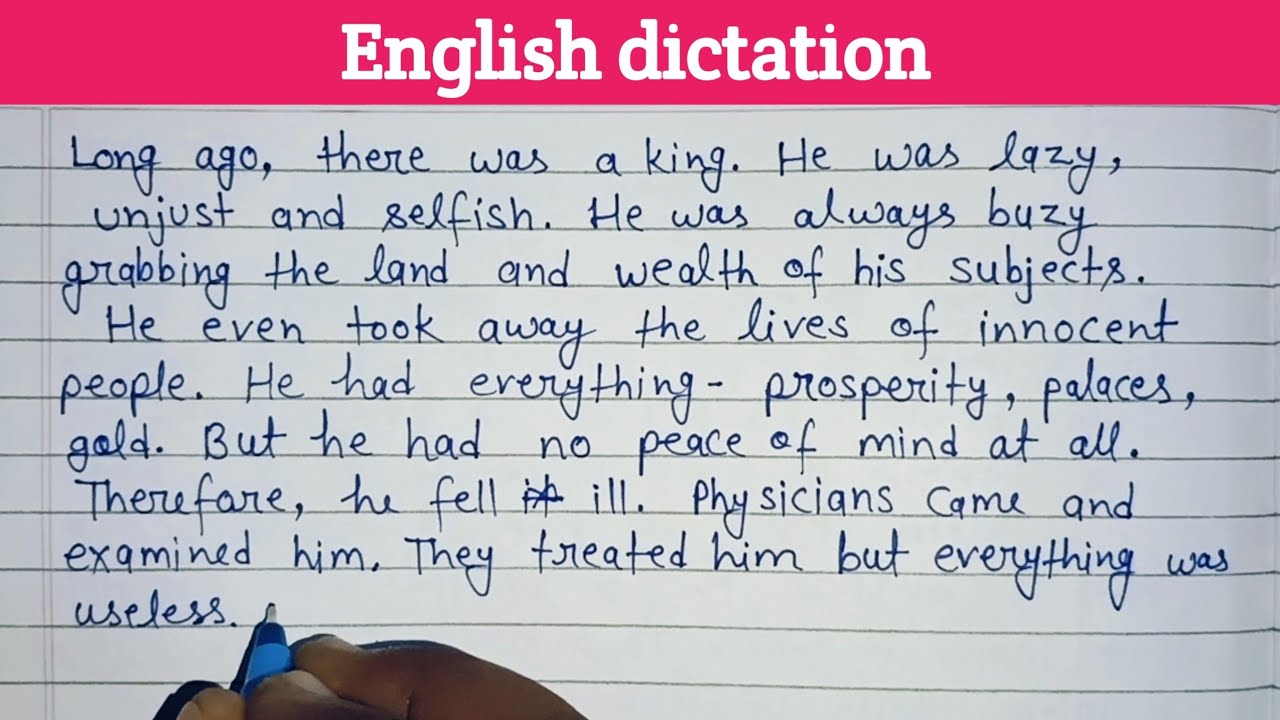 English dictation
Long ago, there was a king. He was lazy,
unjust and selfish. He was always buzy
grabbing the land and wealth of his subjects.
He even took away the lives of innocent
people. He had everything - prosperity, palaces,
gold. But he had no peace of mind at all.
Therefore, he fell ill. Physicians came and
examined him. They treated him but everything was
useless.